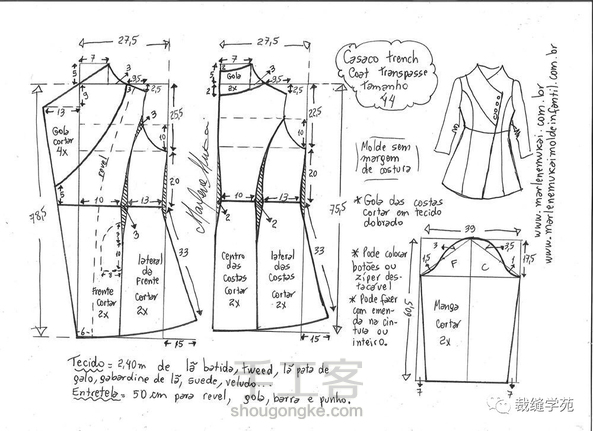 27,5
7
3
3,5
2,5
9
13
Gola
cortar
4x
revel
25,5
10
20
78,5
10
13
2
33
Frente
cortar
2x
lateral
da
Frente
Cortar
2x
6
15
27,5
7
3
3,5
2,5
Gola
2x
2
22,5
10
20
75,5
10
13
2
2
33
Centro
das
Costas
Cortar
2x
lateral
das
Costas
Cortar
2x
15
Casaco trench
Coat Transpasse
Tamanho
44
Molde sem
margem
de costura
* Gola das costas
cortar em tecido
dobrado
* Pode colocar
botões ou
ziper des-
tacavel
* Pode fazer
com emen-
da na cin-
tura ou
inteiro.
39
3
3,5
1
17,5
F
C
60,5
Manga
Cortar
2x
7
7
www.marlenemukai.com.br
www.marlenemukaimoldeinfantil.com.br
Marlene Mukai
Tecido = 2,40 m de lã batida, tweed, lã pata de
galo, gabardine de lã, suede, veludo.
Entretela = 50 cm para revel, gola, barra e punho.
手工客
shougongke.com
裁缝学苑